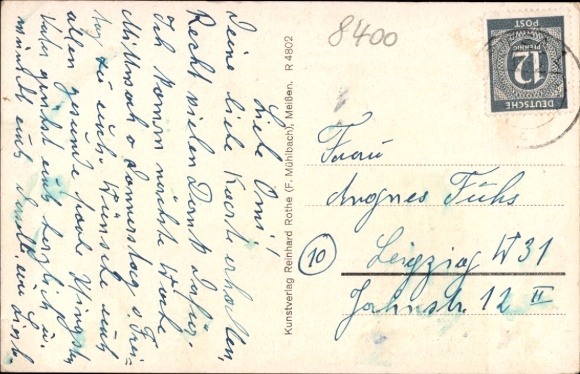 Liebe Omi!
Deine liebe Karte erhalten,
Recht vielen Dank dafür.
Ich komm nächste Woche
Mittwoch o Donnerstag o Frei-
tag zu euch. Wünsche euch
allen gesunde frohe Pfingsten
Vater grüsst euch herzlich u.
wünscht euch
Kunstverlag Reinhard Rothe (F. Mühlbach), Meißen. R 4802
8400
DEUTSCHE
POST
12
PFENNIG
Frau
Agnes Fuhs
10
Leipzig W 31
Jahnstr. 12 II